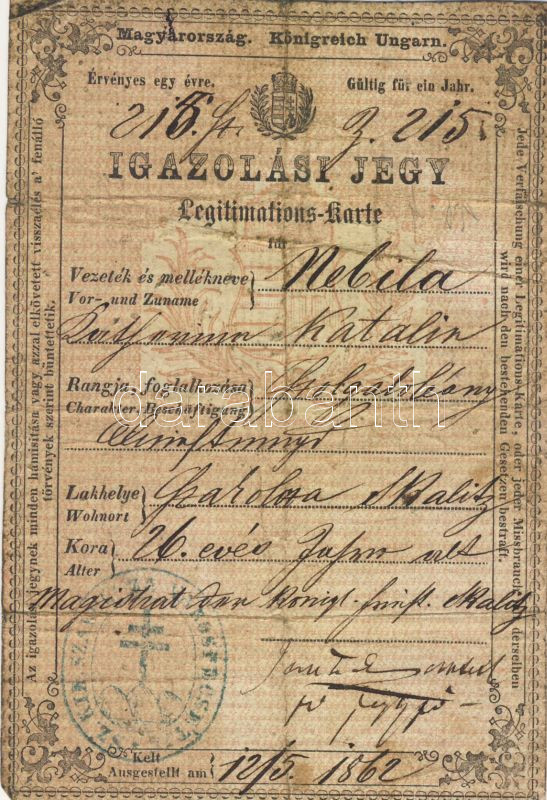 Magyarország. Königreich Ungarn.
Érvényes egy évre. Gültig für ein Jahr.
215. Z. 215.
IGAZOLÁSI JEGY
Legitimations-Karte
für
Vezeték és mellékneve
Vor- und Zuname
Nebila
Katalin
Rangja, foglalkozása
Charakter, Beschäftigung
Szolgáló leány
Lakhelye
Wohnort
Szakolcza Skalitz
Kora
Alter
26. eves Jahre alt
Magistrat der königl. Skalitz
fő jegyző
Kelt
Ausgestellt am
12/5. 1862
Az igazolási jegynek minden hámisitása vagy azzal elkövetett visszaélés a' fenálló
törvények szerint büntettetik.
Jede Verfälschung einer Legitimations-Karte, oder jeder Missbrauch derselben
wird nach den bestehenden Gesetzen bestraft.
darabanth